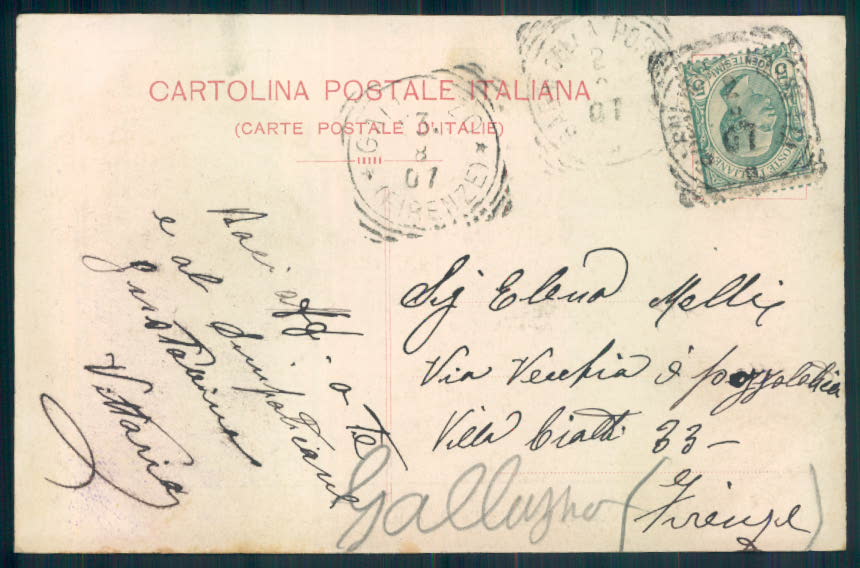 CARTOLINA POSTALE ITALIANA
(CARTE POSTALE D'ITALIE)
GALLUZZO
3 8 07
(FIRENZE)
2
07
POSTE ITALIANE
CENTESIMI 5
07
Baci aff. a te
e al Simpatiano
Vittoria
Sig Elena Melli
Via Vecchia di Pozzolatico
Villa Ciatti 33-
Galluzzo (Firenze)